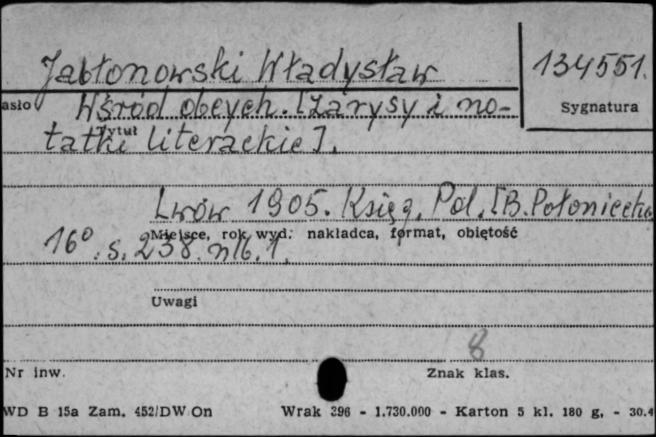 Jabłonowski Władysław
134551.
asło
Sygnatura
Wśród obcych. [Zarysy i no-
Tytuł
tatki literackie].
Lwów 1905. Księg. Pol. [B. Połoniecki
Miejsce, rok wyd. nakładca, format, objętość
16°. s. 238. nlb. 1.
Uwagi
8
Nr inw.
Znak klas.
WD B 15a Zam. 452/DW On Wrak 296 - 1.730.000 - Karton 5 kl. 180 g. - 30.4